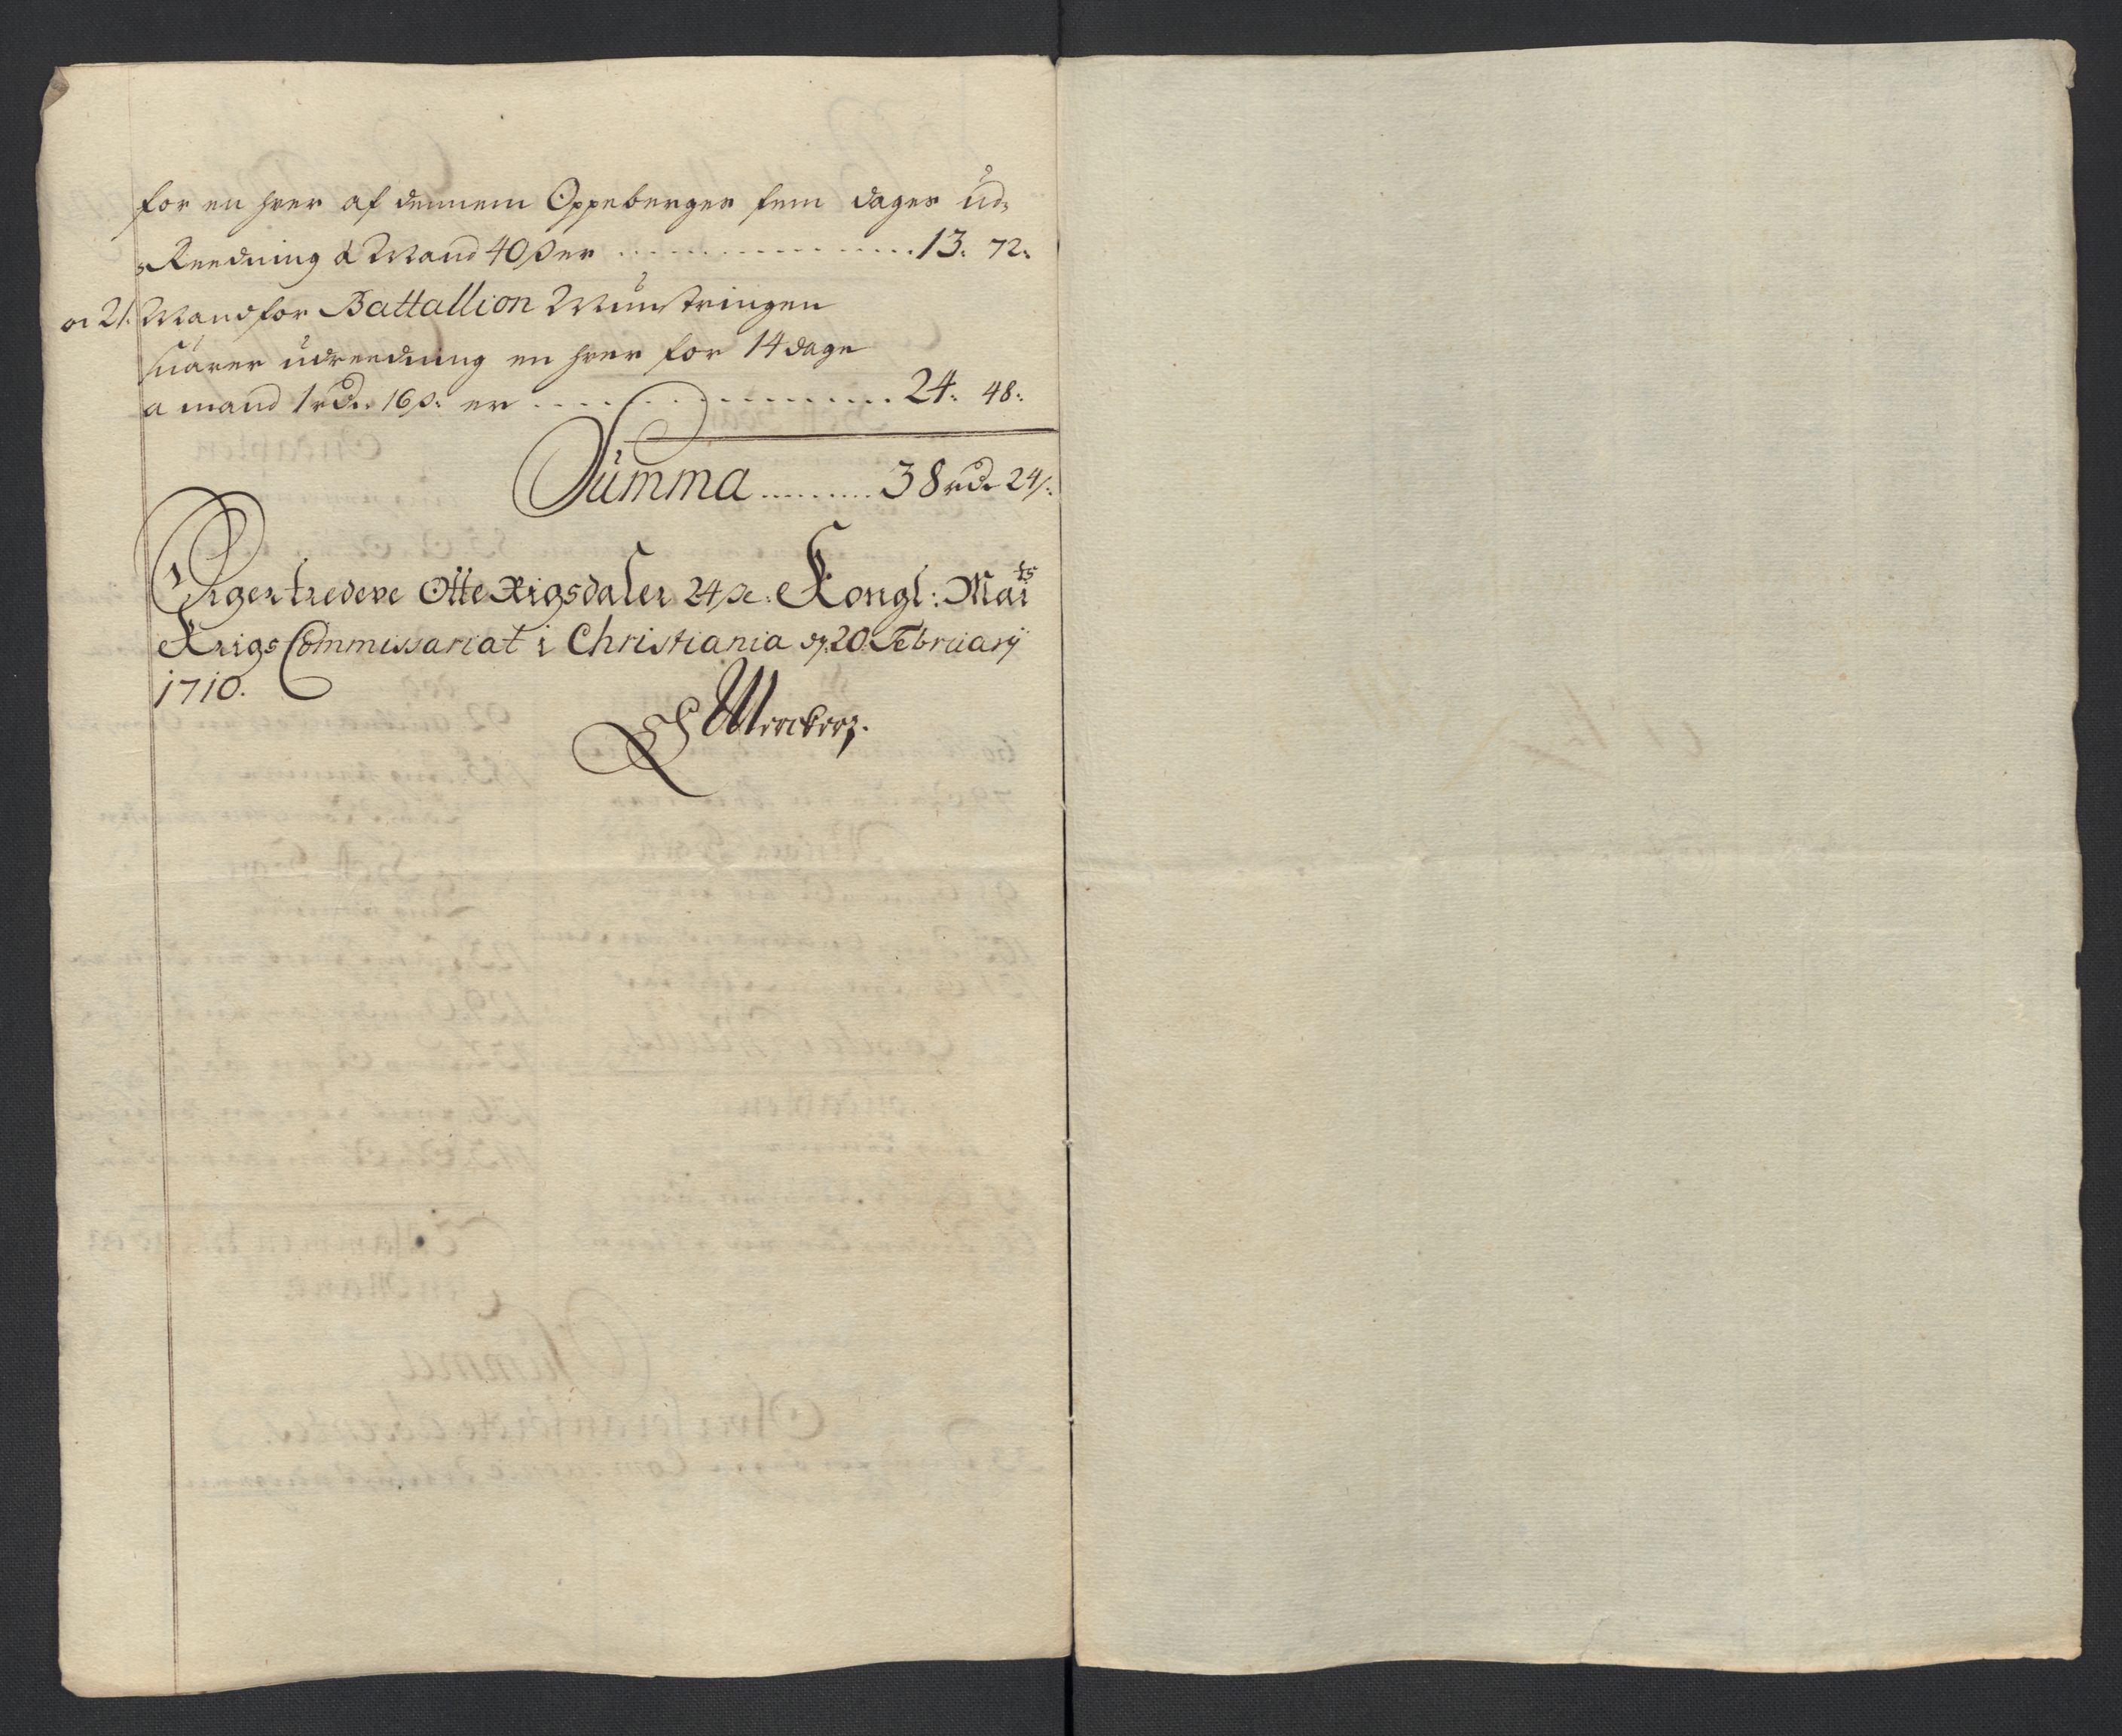 for en hver af dennem Oppeberges fem dages ud-
Reedning à Mand 40 s er 13: 72:
21 Mand for Battallion Münstringen
svarer udreedning en hver for 14 dage
a mand 1 rdr 16 s: er 24: 48:
Summa 38 rdr 24 s:
Siger tredeve Otte Rigsdaler 24 s: Kongl: Maits
Krigs Commissariat i Christiania dn 20 Februarij
1710.